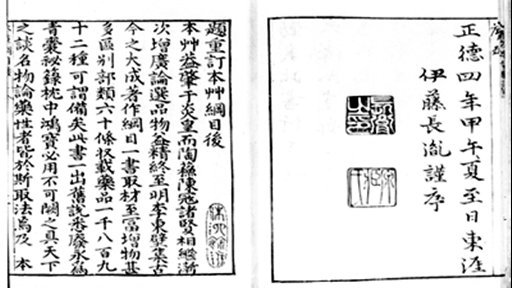 正德四年甲午夏至日東涯
伊藤長胤謹序
題重訂本艸綱目後
本艸蓋肇于炎皇而陶蘇陳寇諸賢相繼漸
次增廣論選品物益精終至明李東璧集古
今之大成著作綱目一書取材至富增物甚
多區別部類六十條收載藥品一千八百九
十二種可謂備矣此書一出舊説悉廢永為
青囊秘籙枕中鴻寶必用不可闕之具天下
之談名物論藥性者皆於斯取法焉及 本